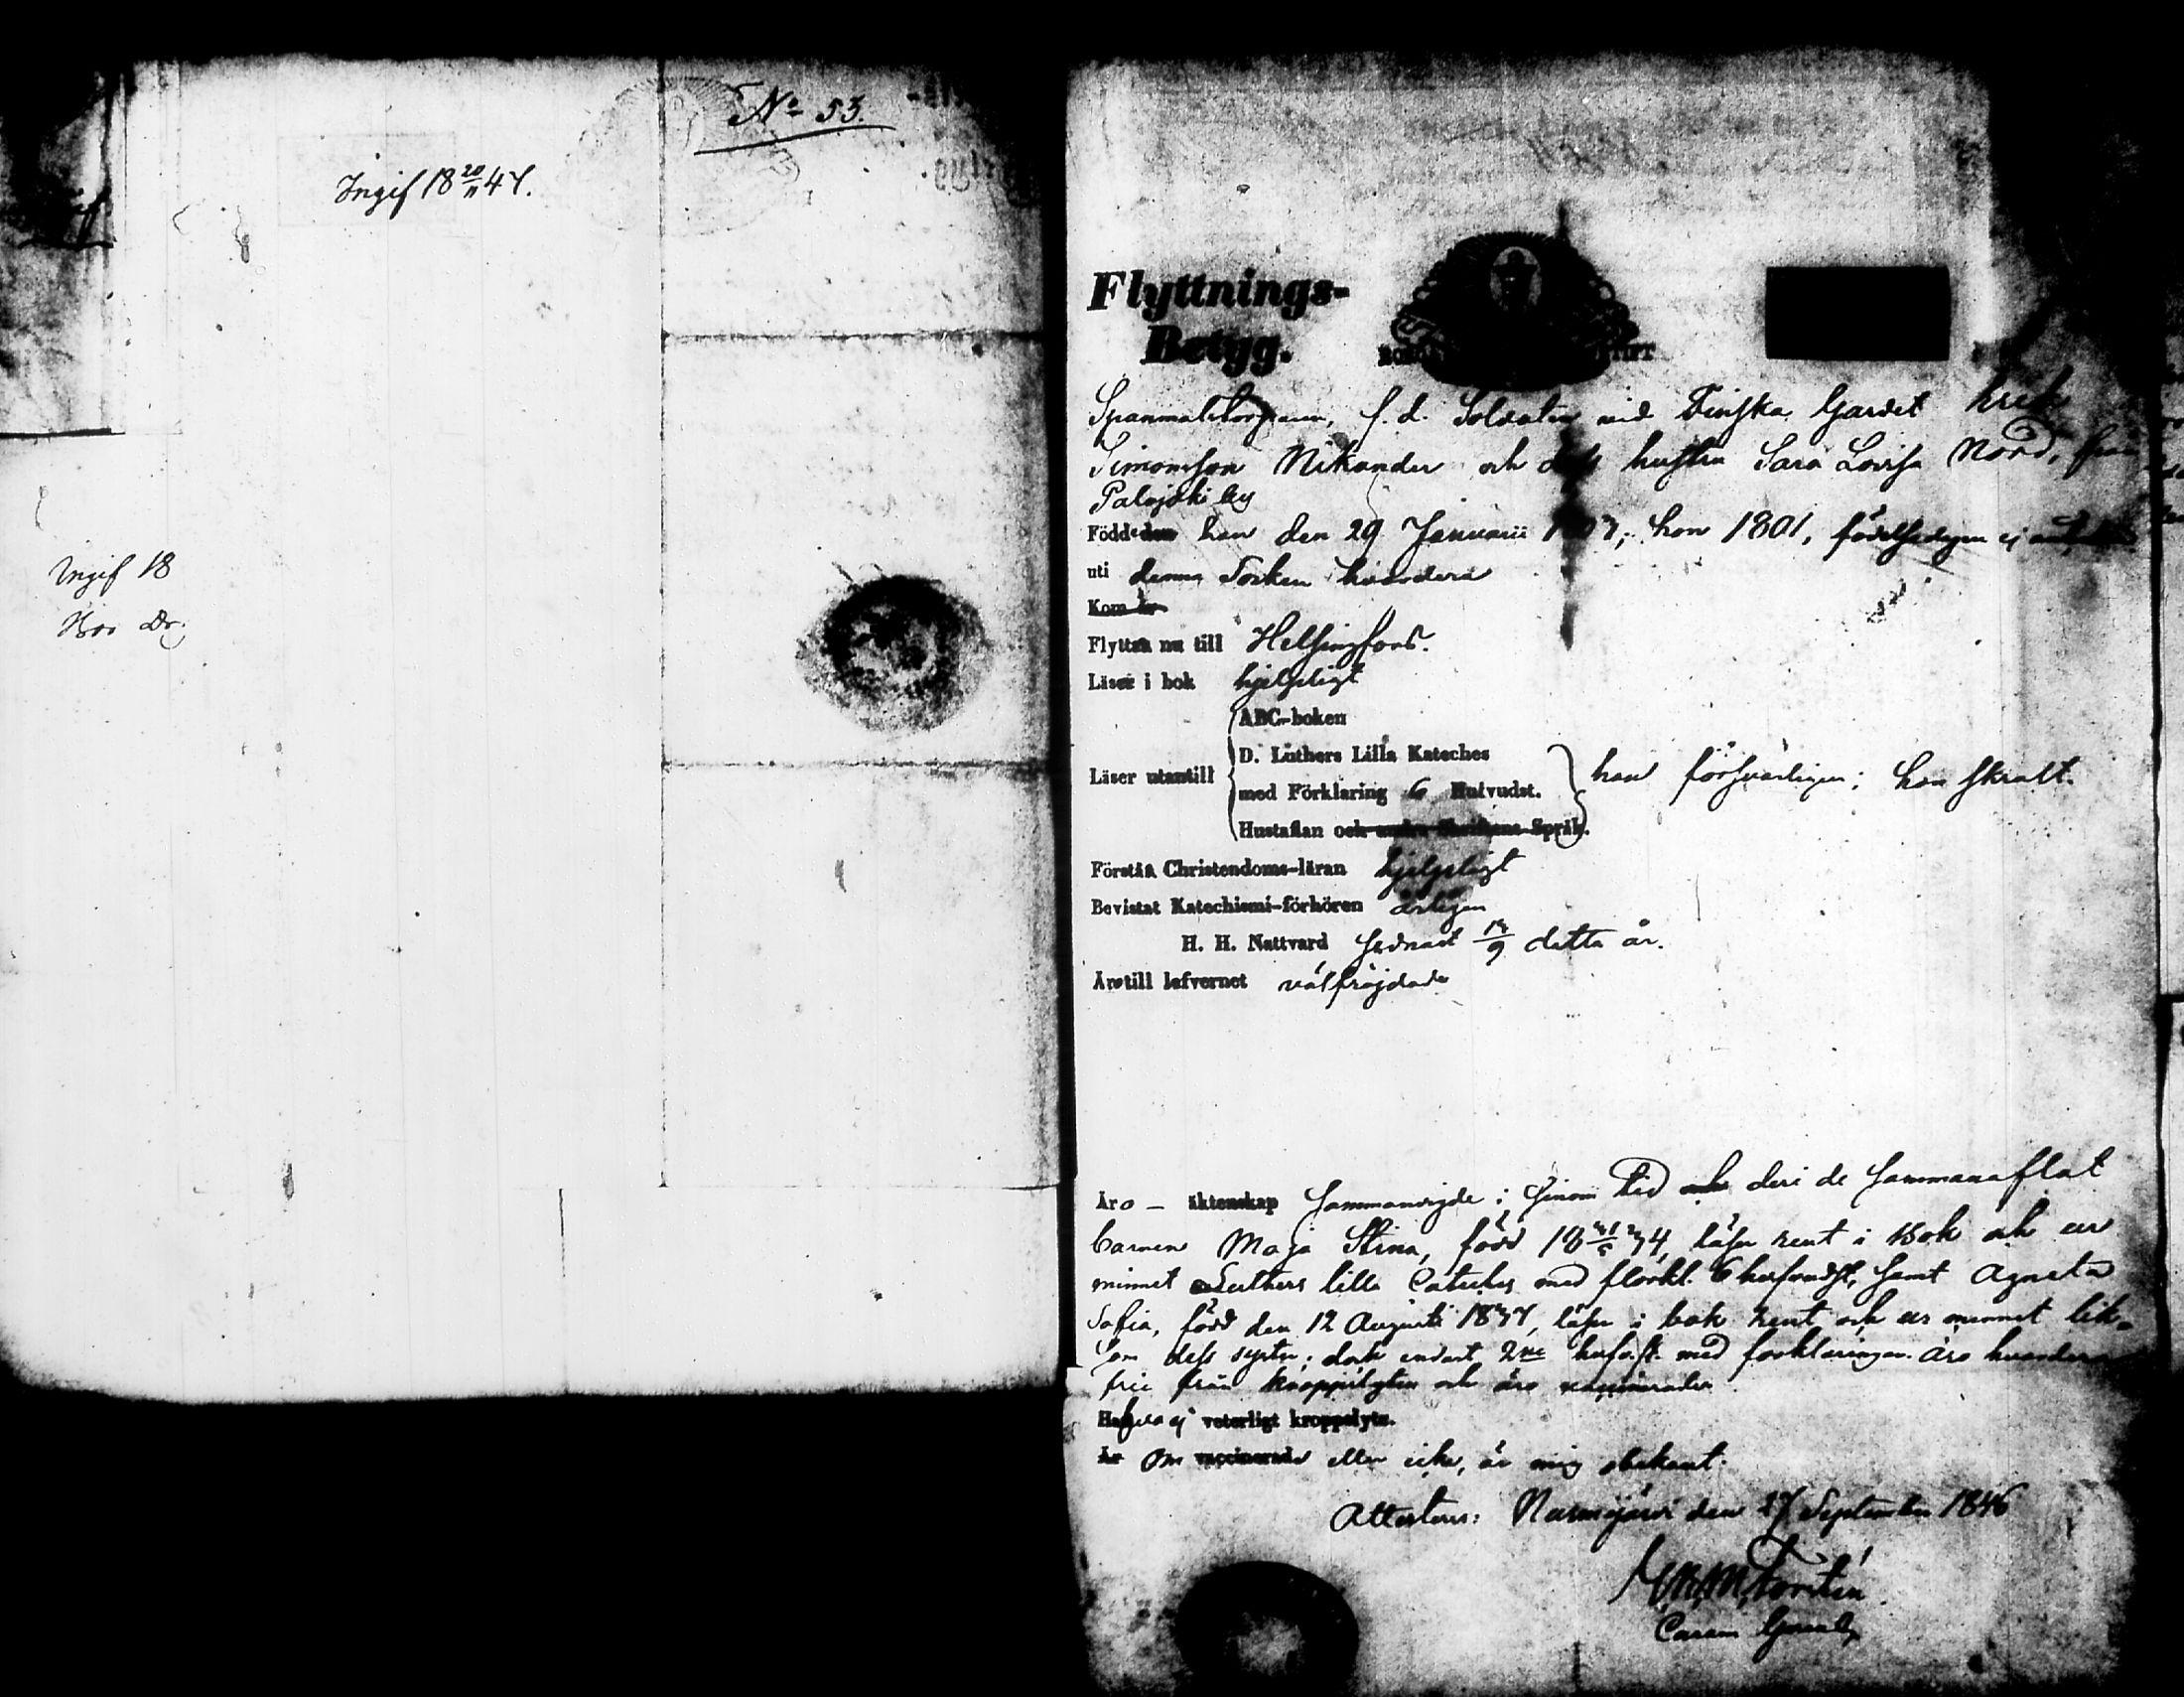 No 53.
Ingif 18 20/11 47.
Ingif 18
Flyttnings-
Betyg.
f. d. Soldaten vid Finska Gardet
Simonsson Nikander och dess hustru Sara Lovisa Nord, från
Palojoki by
Födde han den 29 Januarii ; hon 1801, födelsedagen ej
uti denna Socken hvardera
Kom år
Flytta nu till Helsingfors.
Läser i bok hjelpligt
ABC-boken
D. Luthers Lilla Kateches
Läser utantill
med Förklaring 6 Hufvudst.
han försvarligen; hon skralt.
Hustaflan och andra Skriftens Språk.
Förstå Christendoms-läran hjelpligt
Bevistat Katechismi-förhören årligen
H. H. Nattvard sednast /9 detta år.
Äro till lefvernet välfräjdade
Äro – äktenskap Sammanvigde; Ginom tid deri de sammanaflat
barnen Maja Stina, född 18 34, läser rent i Bok och ur
minnet Luthers lilla Cateches med förkl. 6 hufvudst, samt Agneta
Sofia, född den 12 Augusti 1837, läser i bok rent och ur minnet lik-
som dess syster; dock endast 2ne hufv.st. med förklaringen. äro hvardera
frie från kroppslyten och äro vaccinerade.
Hafva ej veterligt kroppslyte.
Är Om vaccinerade eller icke, är mig obekant.
Attesteras: Nurmijärvi den 27 September 1846